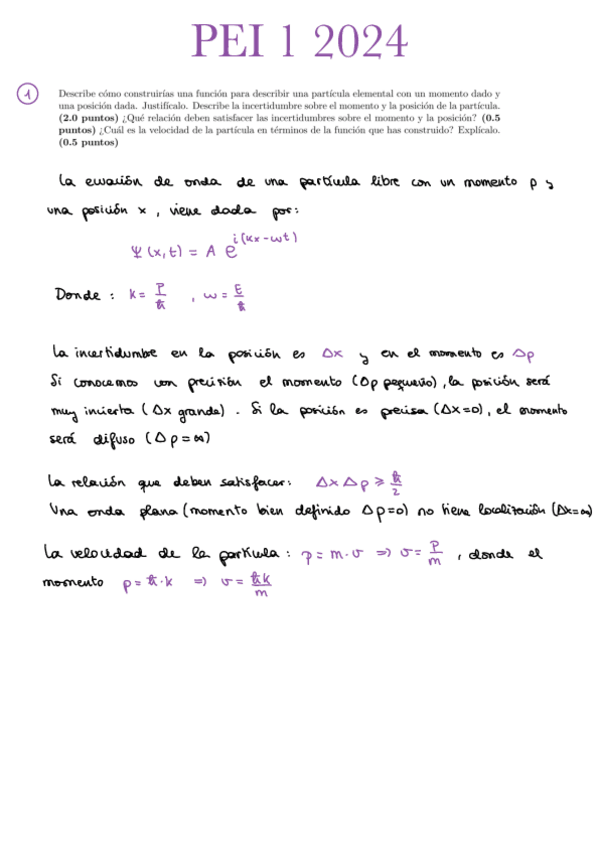 PEI 1 2024
1
Describe cómo construirías una función para describir una partícula elemental con un momento dado y
una posición dada. Justifícalo. Describe la incertidumbre sobre el momento y la posición de la partícula.
(2.0 puntos) ¿Qué relación deben satisfacer las incertidumbres sobre el momento y la posición? (0.5
puntos) ¿Cuál es la velocidad de la partícula en términos de la función que has construido? Explícalo.
(0.5 puntos)
La ecuación de onda de una partícula libre con un momento p y
una posición x, viene dada por:
Ψ(x,t) = A e^{i(kx-ωt)}
Donde: k = p/ħ , ω = E/ħ
La incertidumbre en la posición es Δx y en el momento es Δp
Si conocemos con precisión el momento (Δp pequeño), la posición será
muy incierta (Δx grande). Si la posición es precisa (Δx=0), el momento
será difuso (Δp=∞)
La relación que deben satisfacer: Δx Δp ≥ ħ/2
Una onda plana (momento bien definido Δp=0) no tiene localización (Δx=∞)
La velocidad de la partícula: p = m·v ⇒ v = p/m , donde el
momento p = ħ·k ⇒ v = ħk/m